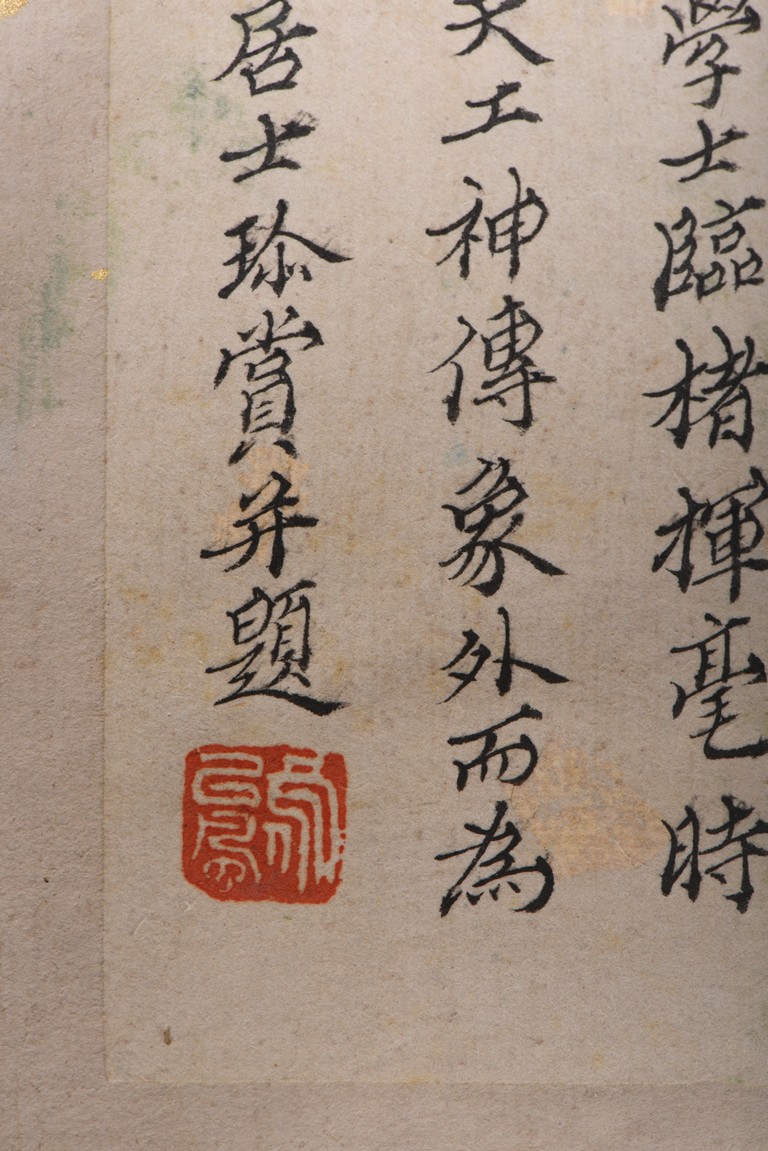 學士臨楮揮毫時
天工神傳象外而為
居士珍賞并題